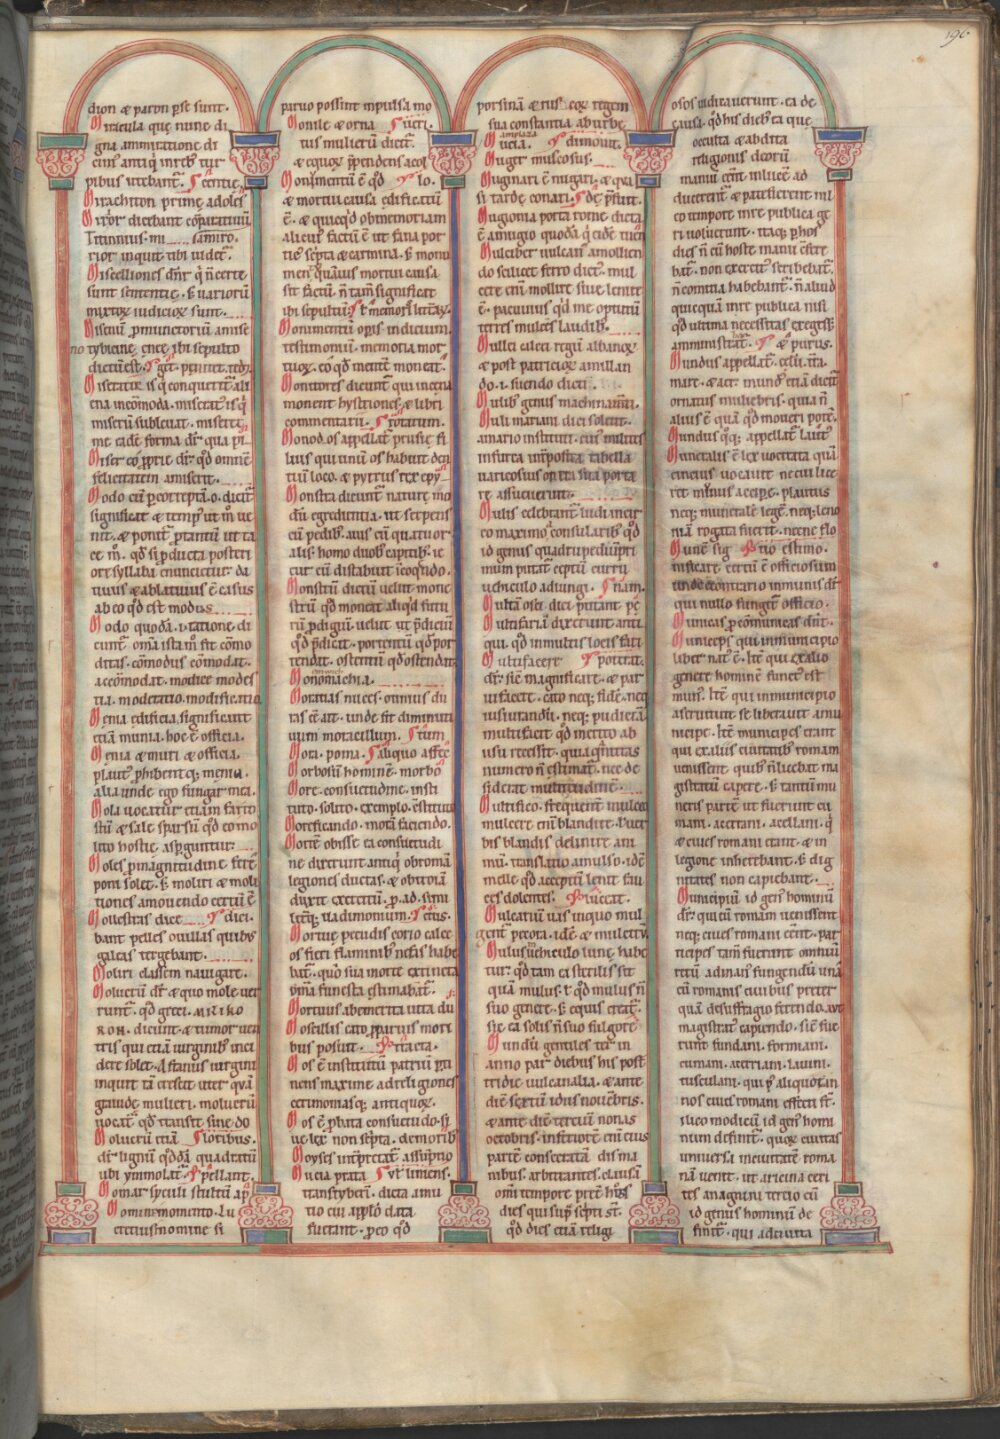 196
dion & paron p se sunt.
Miracula que nunc di
gna ammiratione di
cim' antiq in reb' tur
pibus utebant. centie.
Mirachion prime adoles
Miror dicebant comparatiuu
Titinnius. mi samiro.
rior inquit tibi uidet.
Miscelliones dnr q n certe
sunt sententie. & uarioru
mixtoꝝ iudicioꝝ sunt.
Misenu pmunctoriu a mise
no tybicine enee ibi sepulto
dictu est.
Miseratur is q conquerit ali
ena incomoda. miseret is q
miseriis subleuat. miseret
me eade forma dr qua pi
Miser co pprie dr qd omne
felicitatem amiserit.
Modo cu p correpta. o. dicit
significat & temp' ut m ue
nit. & ponit p tantu ut ta
ce m. qd si pducta posteri
ore syllaba enuncietur. da
tiuus & ablatiuus e casus
ab eo qd est modus
Modo quoda. i. ratione di
cunt. oma ista m fit como
ditas. comodus comodat.
accomodat. modice modes
tia. moderatio. modificatio.
Menia edificia significant
etia munia. hoc e officia.
Menia & muri & officia.
plaut' phibentq; menia.
alia unde ego fungar mea.
Mola uocatur etiam farro
stu & sale sparsu qd eo mo
lito hostie asperguntur.
Moles p magnitudine fere
poni solet. & moliri & moli
tiones amouendo certu e
Mollestras dice dici.
bant pelles ouillas quibus
galeas tergebant.
Moliri classem nauigare.
Moluciu dr & quo mole uer
runt. qd greci. MRIKO
RON. dicunt. & tumor uen
tris qui etia uirginib' inci
dere solet. Afranius uirgini
inquit ta crescit uter qua
grauide mulieri. molucru
uocat qd transit sine do
Molucru etia loribus.
dr lignu qdda quadratu
ubi immolat pellant.
Momar syculi stultu ap
Momine momento. Lu
cretius nomine si
paruo possint impulsa mo
Monile & orna ueri.
tus mulieru dict.
& equoꝝ ppendens a col
Monimentu e qd lo.
& mortui causa edificatu
e. & quicqd ob memoriam
alicui' factu e ut fana por
tic' septa & carmina. & monu
men quauis mortui causa
sit factu n tam significat
ibi sepultu.
Monimentu opis indicium.
testimoniu. memoria mor
tuoꝝ. eo qd mente moneat.
Monitores dicunt qui in scena
monent hystriones. & libri
commentarii. rorarum.
Monod os appellat prusie fi
lius qui unu os habuit den
tiu loco. & pyrrus rex epy
Monstra dicunt nature mo
du egredientia. ut serpens
cu pedib' auis cu quatuor
alis. homo duob' capitib'. ie
cur cu distabuit i coqndo.
Monstru dictu uelut mone
stru qd moneat aliqd futu
ru pdigiu. uelut ut pdiciu
qd pdicit. portentu qd por
tendat. ostentu qd ostendat.
Monomachia.
Moracias nuces. Titinnius du
ras ee ait. unde fit diminuti
uum moracillum.
Mora. poma. aliquo affec
Morbosu hominem. morbo
More. consuetudine. insti
tuto. solito. exemplo.
Morificando. mora faciendo.
Morte obisse ea consuetudi
ne dixerunt antiq ob roma
legiones ductas. & ob troia
duxit exercitu. p. ad. simi
literq; uadimonium.
Mortue pecudis corio calce
os fieri flaminib' nefas habe
bat. qm sua morte extincta
oma funesta estimabat.
Mortuus ab emerita uita du
Moscillis cato p paruis mori
bus posuit.
Mos e institutu patriu pti
nens maxime ad religiones
cerimoniasq; antiquoꝝ.
Mos e pbata consuetudo. si
ue lex non scripta. de morib'
Moyses interpretat assumptio
Mucia prata
transtyberi. dicta a mu
tio cui a pplo data
fuerant. p eo qd
porsina & ruscoꝝ regem
sua constantia ab urbe
ucia. dimouit.
Muger muscosus.
Muginari e nugari. & qua
si tarde conari.
Mugionia porta rome dicta
e a mugio quoda q eide tuen
Mulciber uulcan' a mollien
do scilicet ferro dict'. mul
cere eni mollire siue lenire
e. pacuuius qd me optutu
terres mulces laudib'.
Mullei calcei regu albanoꝝ
& post patricioꝝ a mullan
do. i. suendo dicti
Mulib' genus machinami.
Muli mariani dici solent.
a mario instituti. cui' milites
in furca imposita tabella
uaricosius on ta sua porta
re assueuerunt.
Mulis celebrant ludi in cir
co maximo consularib' qd
id genus quadrupediu pri
mum putat ceptu currui
uehiculo adiungi. nam.
Multa osci dici putant. pe
Multifaria dixerunt anti
qui. qd in multis locis fari
Multifacere poterat.
dr. sic magnifacere. & par
uifacere. cato neq; fide. neq
iusiurandu. neq; pudicicia
multifacit. qd merito ab
usu recessit. quia qntitas
numero n estimat. nec de
siderat multitudine.
Multifico. frequenter mulceo
mulcere eni blandire. l'uer
bis blandis delinire ani
mu. translatio a mulso. idest
melle qd acceptu lenit fau
ces dolentes. uicat.
Mulcariu uas in quo mul
gent pecora. idest & mulcetru
Mulus uehiculo lune habe
tur. qd tam ea sterilis sit
quam mulus. l' qd mulus n
suo genere. & equis creat.
sic ea solis n suo fulgore
Mundu gentiles ter in
anno patere diebus his. post
tridie uulcanalia. & ante
diem sextu idus nouebris.
& ante diem terciu nonas
octobris. inferiore eni eius
parte consecrata dis ma
nibus arbitrantes clausam
omi tempore preter hos
dies qui supra scripti st.
qd dies etia religi
osos iudicauerunt. ea de
causa. qd his dieb' ea que
occulta & abdita
religionis deoru
maniu eent in luce ad
ducerent & patefierent ni
co tempore in re publica ge
ri uoluerunt. itaq; p hos
dies n cu hoste manu osere
bat. non exercit' scribebat.
n comicia habebant. n aliud
quicqua in re publica nisi
qd ultima necessitas exegiss;
amministrat. & purus.
Mundus appellat. celu. tra.
mare. & aer. mund' etia dicit
ornatus muliebris. quia n
alius e qua qd moueri potest.
Mundus qq; appellat laut'
Muneralis e lex uocitata qua
cincius uocauit ne cui lice
ret munus accipe. plautus
neq; munerale lege. neq; leno
nia rogata fuerit necne flo
Mune sig
nificare certu e officiosum
unde e contrario inmunis dr
qui nullo fungit' officio.
Municas p communicas dnt.
Municeps qui in municipio
liber nat' e. ite qui ex alio
genere hominu functus est
mun. ite qui in municipio
a seruitute se liberauit a mu
nicipe. ite municipes erant
qui ex aliis ciuitatib' romam
uenissent quib' n licebat ma
gistratu capere. & tantu mu
neris partem ut fuerunt cu
mani. acerrani. atellani. q
& ciues romani erant. & in
legione merebant. & dig
nitates non capiebant.
Municipiu id gen' hominu
dr. qui cu romam uenissent
neq; ciues romani eent. par
ticipes tam fuerunt omniu
reru ad mun' fungendu una
cu romanis ciuibus preter
qua de suffragio ferendo. aut
magistrat' capiendo. sic fue
runt fundani. formiani.
cumani. acerrani. lanuui.
tusculani. qui p' aliquot an
nos ciues romani effecti st.
alio modo cu id gen' homi
num definit. quoꝝ ciuitas
uniuersa in ciuitate roma
na uenit. ut aricini ceri
tes anagnini tercio cu
id genus hominu de
finit. qui ad ciuita